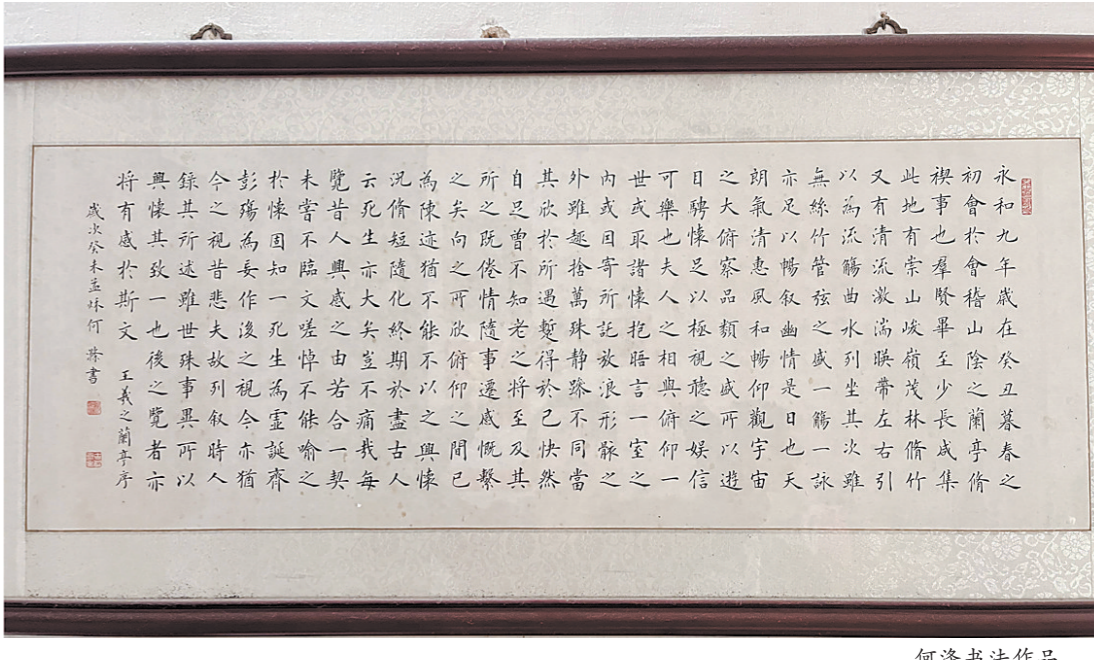 永和九年歲在癸丑暮春之
初會於會稽山陰之蘭亭脩
禊事也羣賢畢至少長咸集
此地有崇山峻嶺茂林脩竹
又有清流激湍暎帶左右引
以為流觴曲水列坐其次雖
無絲竹管弦之盛一觴一詠
亦足以暢叙幽情是日也天
朗氣清惠風和暢仰觀宇宙
之大俯察品類之盛所以遊
目騁懷足以極視聽之娱信
可樂也夫人之相與俯仰一
世或取諸懷抱晤言一室之
內或因寄所託放浪形骸之
外雖趣捨萬殊静躁不同當
其欣於所遇蹔得於己快然
自足曾不知老之將至及其
所之既倦情隨事遷感慨繫
之矣向之所欣俯仰之間已
為陳迹猶不能不以之興懷
況脩短隨化終期於盡古人
云死生亦大矣豈不痛哉每
覽昔人興感之由若合一契
未嘗不臨文嗟悼不能喻之
於懷固知一死生為虛誕齊
彭殤為妄作後之視今亦猶
今之視昔悲夫故列叙時人
錄其所述雖世殊事異所以
興懷其致一也後之覽者亦
將有感於斯文 王羲之蘭亭序
歲次癸未孟秌何滌書
何涤书法作品